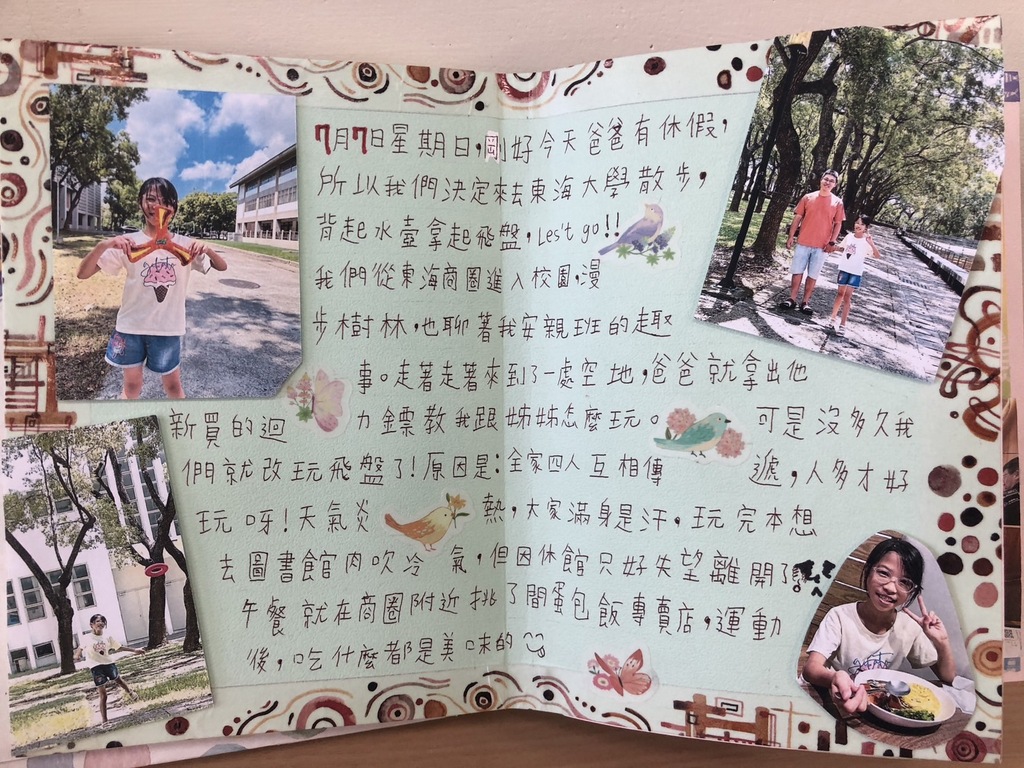 7月7日星期日,剛好今天爸爸有休假,
所以我們決定來去東海大學散步,
背起水壺拿起飛盤,Les't go!!
我們從東海商圈進入校園,漫
步樹林,也聊著我安親班的趣
事。走著走著來到了一處空地,爸爸就拿出他
新買的迴力鏢教我跟姊姊怎麼玩。可是沒多久我
們就改玩飛盤了!原因是:全家四人互相傳遞,人多才好
玩呀!天氣炎熱,大家滿身是汗。玩完本想
去圖書館內吹冷氣,但因休館只好失望離開了。
午餐就在商圈附近挑了間蛋包飯專賣店,運動
後,吃什麼都是美味的